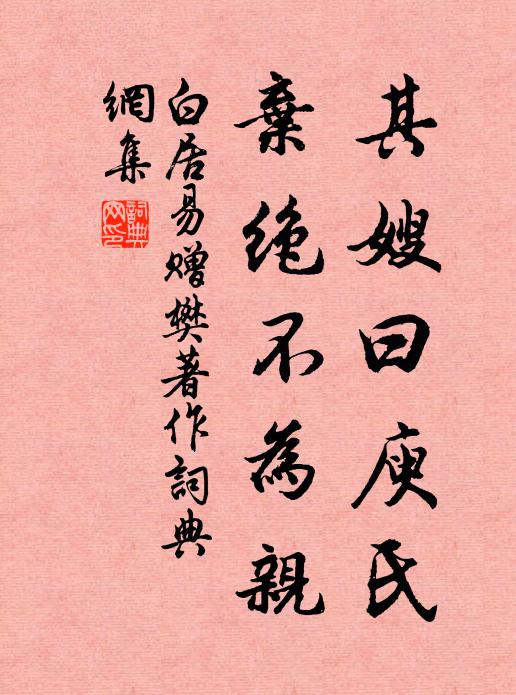 其嫂曰庾氏
棄絶不為親
白居易贈樊著作詞典
網集
詞典
網印